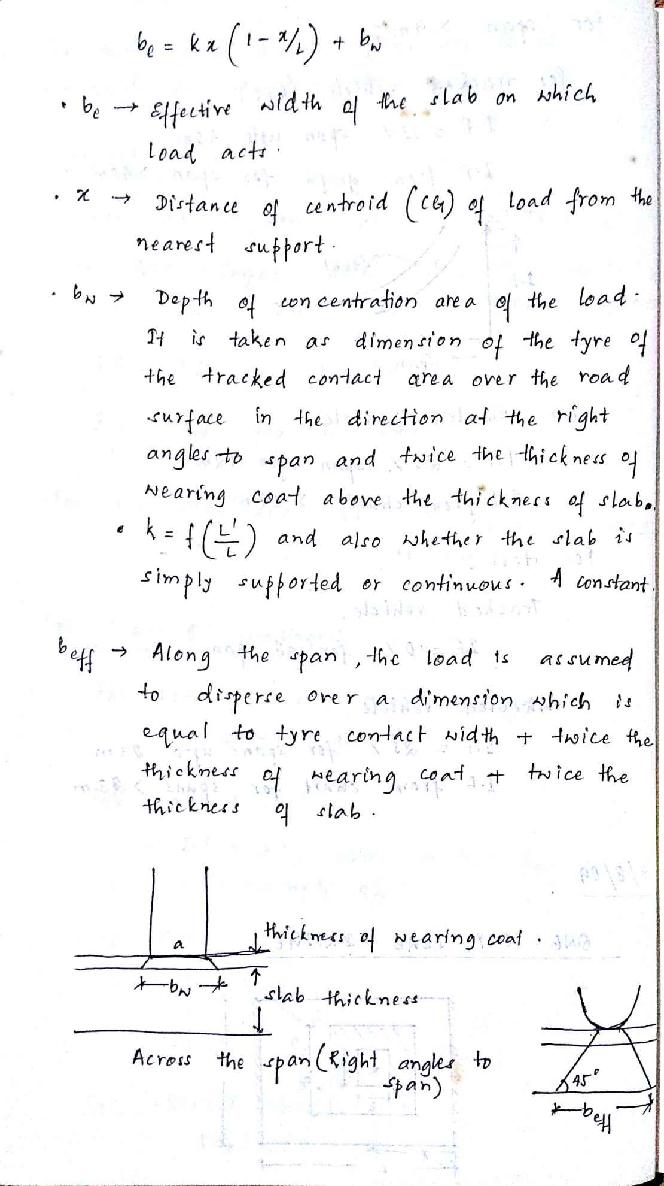 be = kx (1 - x/L) + bw
• be → Effective width of the slab on which
load acts.
• x → Distance of centroid (CG) of load from the
nearest support.
• bw → Depth of concentration area of the load.
It is taken as dimension of the tyre of
the tracked contact area over the road
surface in the direction at the right
angles to span and twice the thickness of
wearing coat above the thickness of slab.
• k = f (L'/L) and also whether the slab is
simply supported or continuous. A constant.
beff → Along the span, the load is assumed
to disperse over a dimension which is
equal to tyre contact width + twice the
thickness of wearing coat + twice the
thickness of slab.
a
thickness of wearing coat.
bw
slab thickness
Across the span (Right angles to
span)
45°
beff